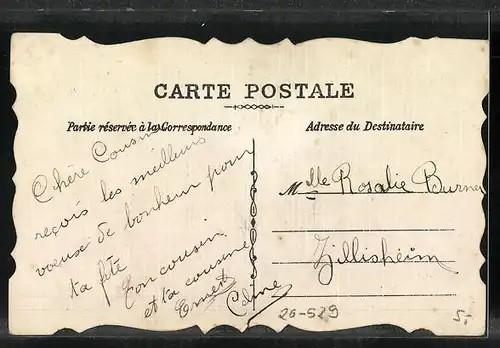 CARTE POSTALE
Partie réservée à la Correspondance
Adresse du Destinataire
Chère Cousine
reçois les meilleurs
voeux de bonheur pour
ta fête
Ton cousin
et ta cousine
Ernest
Mlle Rosalie Burner
Zillisheim
20-529
5,-